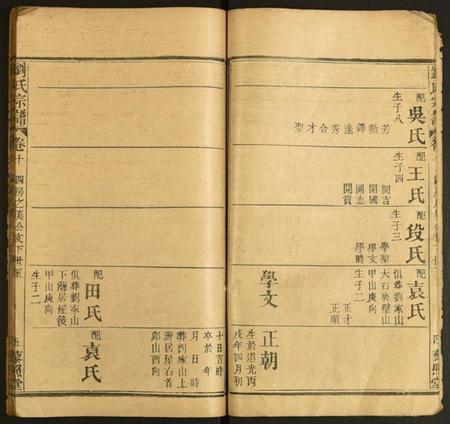 劉氏宗譜
卷十
配
吳氏
生子八
芳
勲
鐸
達
秀
合
才
聖
配
王氏
生子四
開吉
開國
開志
開貴
配
段氏
生子三
學聖
學文
學時
配
袁氏
俱葬劉家山
大石夾壁山
甲山庚向
生子二
正才
正順
學文
正朝
生於道光丙
戌年四月初
十日吉時
卒於 年
月 日 時
葬劉家山上
灣居屋右首
山酉向
配
袁氏
配
田氏
俱葬劉家山
下灣居屋後
甲山庚向
生子二
劉氏宗譜
卷十
四房之美公支下世系
五
照堂